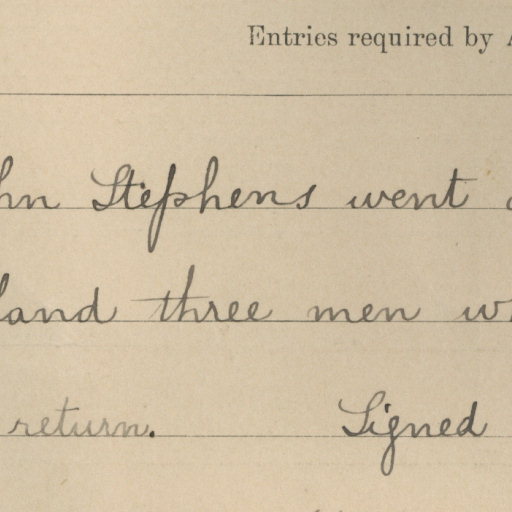 Entries required by
hn Stephens went
land three men wh
return. Signed